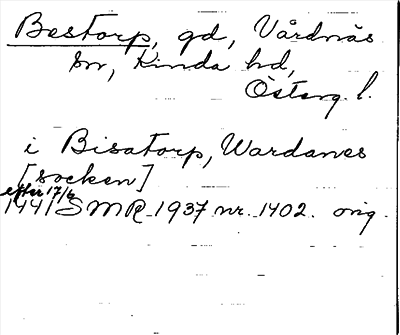 Bestorp, gd, Vårdnäs
sn, Kinda hd,
Österg. l.
i Bisatorp, Wardanes
[socken]
efter 17/6
1441 SMR 1937 nr. 1402. orig.